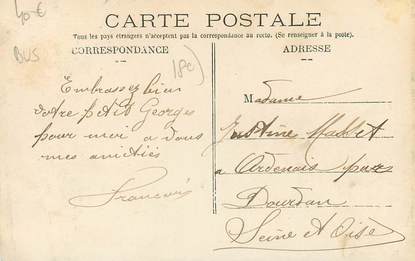 40 €
BUS
CARTE POSTALE
Tous les pays étrangers n'acceptent pas la correspondance au recto. (Se renseigner à la poste).
CORRESPONDANCE
ADRESSE
Embrassez bien
votre petit Georges
pour moi a vous
mes amitiés
François
Madame
Justine
a Ardenais par
Dourdan
Seine et Oise